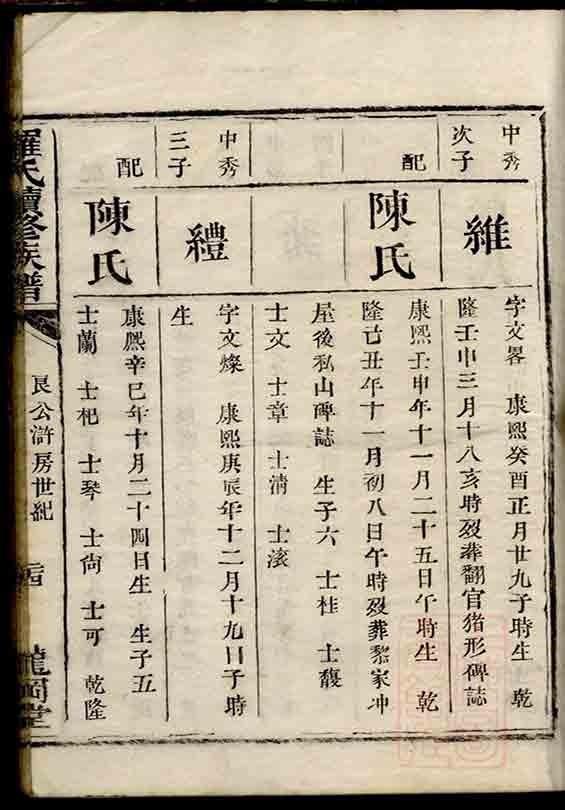 中秀
次子
維
字文畧 康熙癸酉正月廿九子時生 乾
隆壬申三月十八亥時歿葬翻官猪形碑誌
配
陳氏
康熙壬申年十一月二十五日午時生 乾
隆己丑年十一月初八日午時歿葬黎家冲
屋後私山碑誌 生子六 士桂 士馥
士文 士章 士清 士滚
中秀
三子
禮
字文燦 康熙庚辰年十二月十九日子時
生
配
陳氏
康熙辛巳年十月二十四日生 生子五
士蘭 士杞 士琴 士尙 士可 乾隆
羅氏續修族譜
艮公滸房世紀
龍岡堂